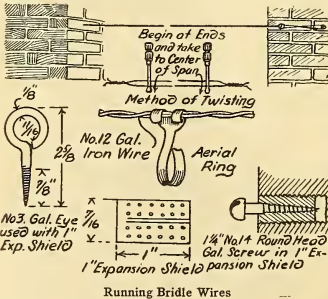 Begin at Ends
and take
to Center
of Span
Method of Twisting
1/8"
11/16
2 5/8
7/8"
No.12 Gal.
Iron Wire
Aerial
Ring
No3. Gal. Eye
used with 1"
Exp. Shield
7/16
1"
1"Expansion Shield
1¼"No.14 Round Head
Gal. Screw in 1" Ex-
pansion Shield
Running Bridle Wires